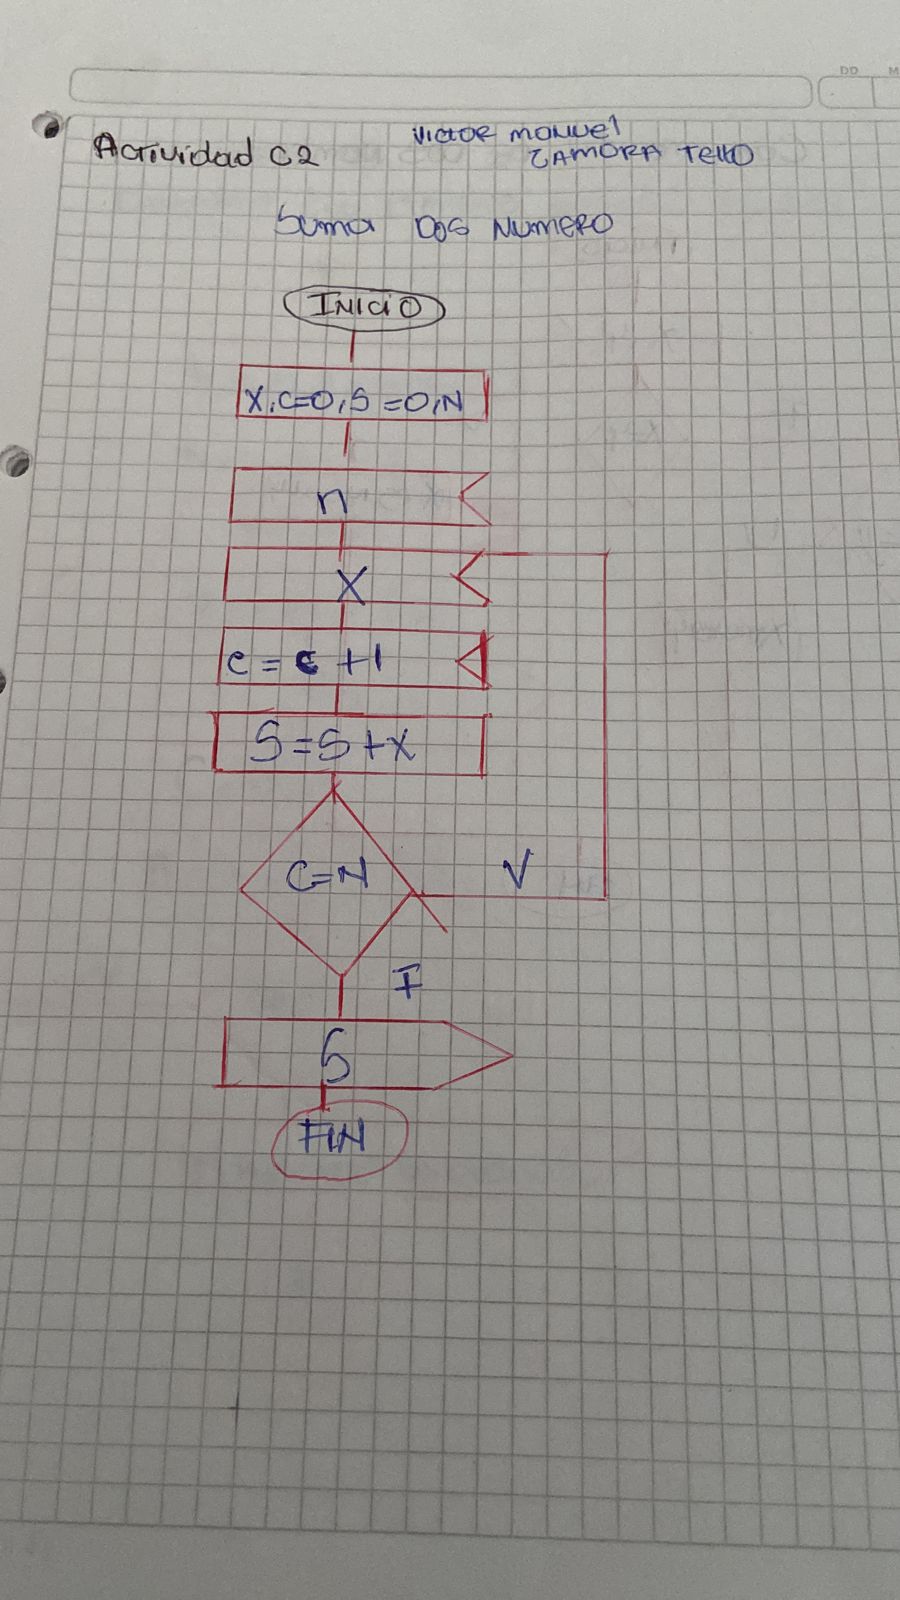 DD M
Actividad C2
Victor manuel
ZAMORA Tello
Suma DOS NUMERO
INICIO
X, C=0, S=0, N
n
X
c = c +1
S=S+X
C=N
V
F
S
FIN